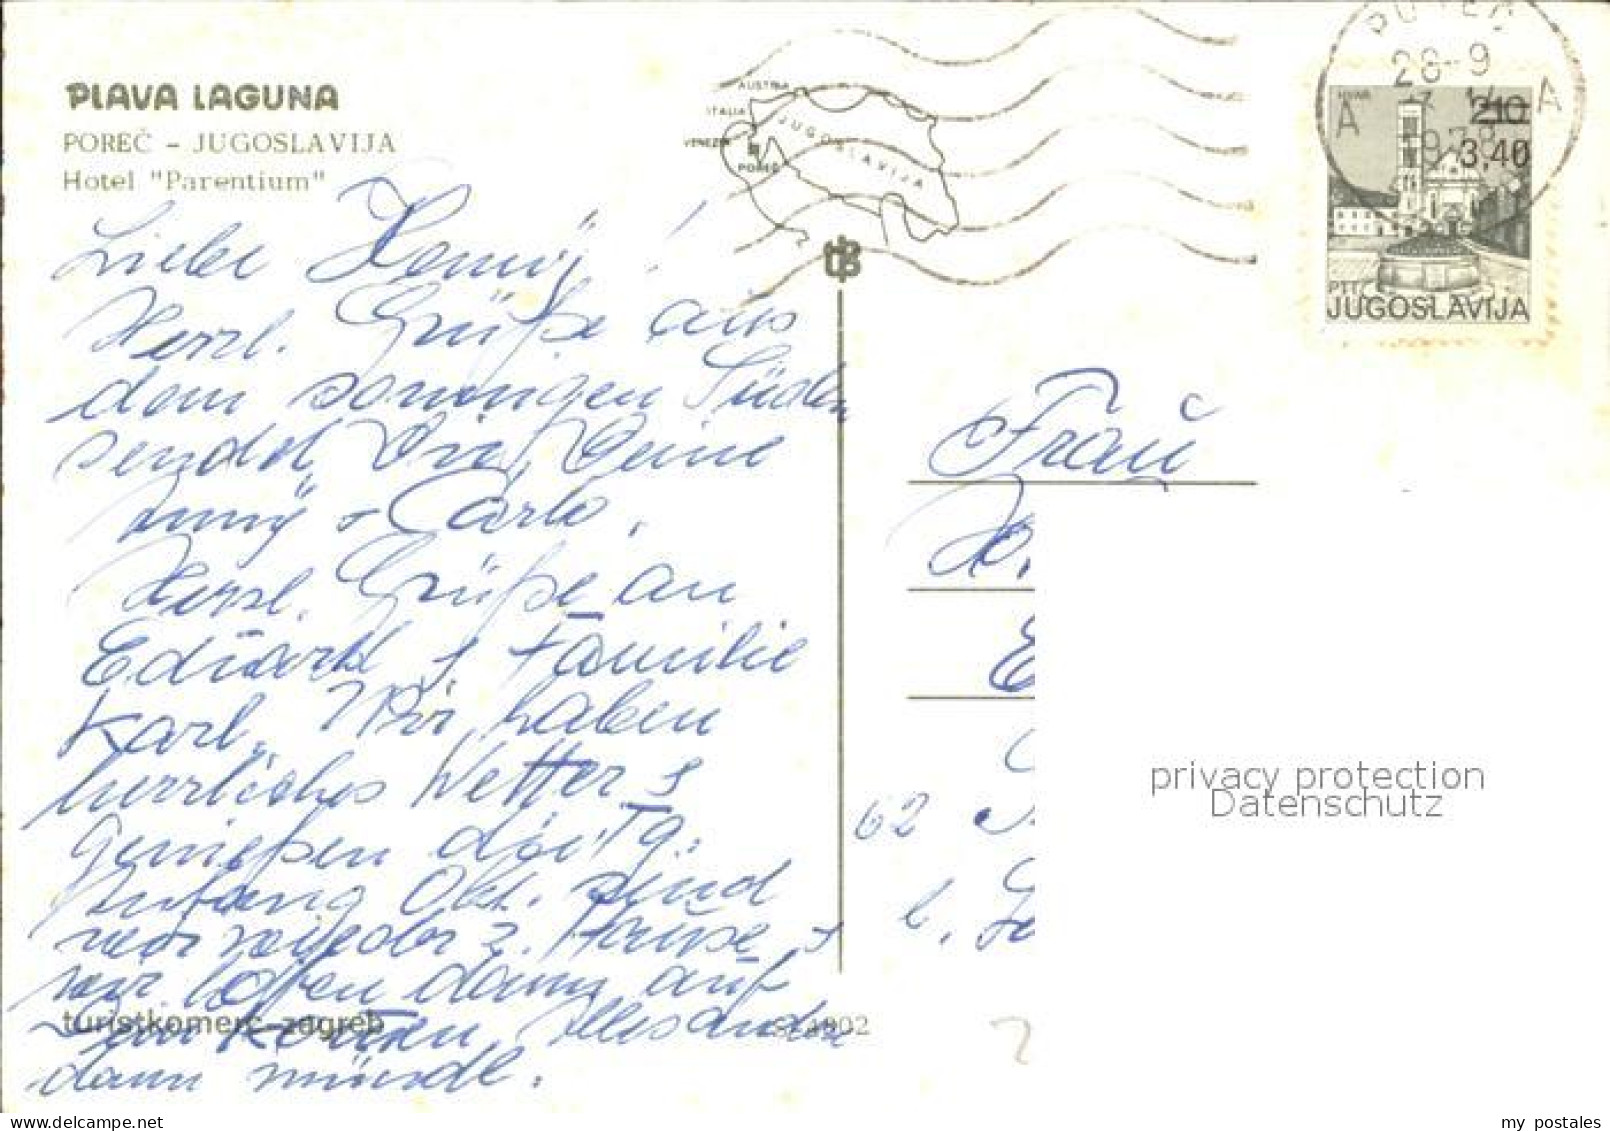 PLAVA LAGUNA
POREČ - JUGOSLAVIJA
Hotel "Parentium"
AUSTRIA
ITALIA
VENEZIA
POREČ
JUGOSLAVIJA
28-9
1978
A
A
HVAR
210
3,40
PTT
JUGOSLAVIJA
Liebe
Herzl. Grüße aus
dem sonnigen Süden
sendet Dir, Deine
Anny + Carlo.
Herzl. Grüße an
Eduard + Familie
Karl. Wir haben
herrliches Wetter +
genießen das tg.
Anfang Okt. sind
wir wieder z. Hause +
wir hoffen dann auf
kommen, Alles andre
dann mündl.
turistkomerc-zagreb
4802
Frau
H.
E
62
b.
privacy protection
Datenschutz
my postales